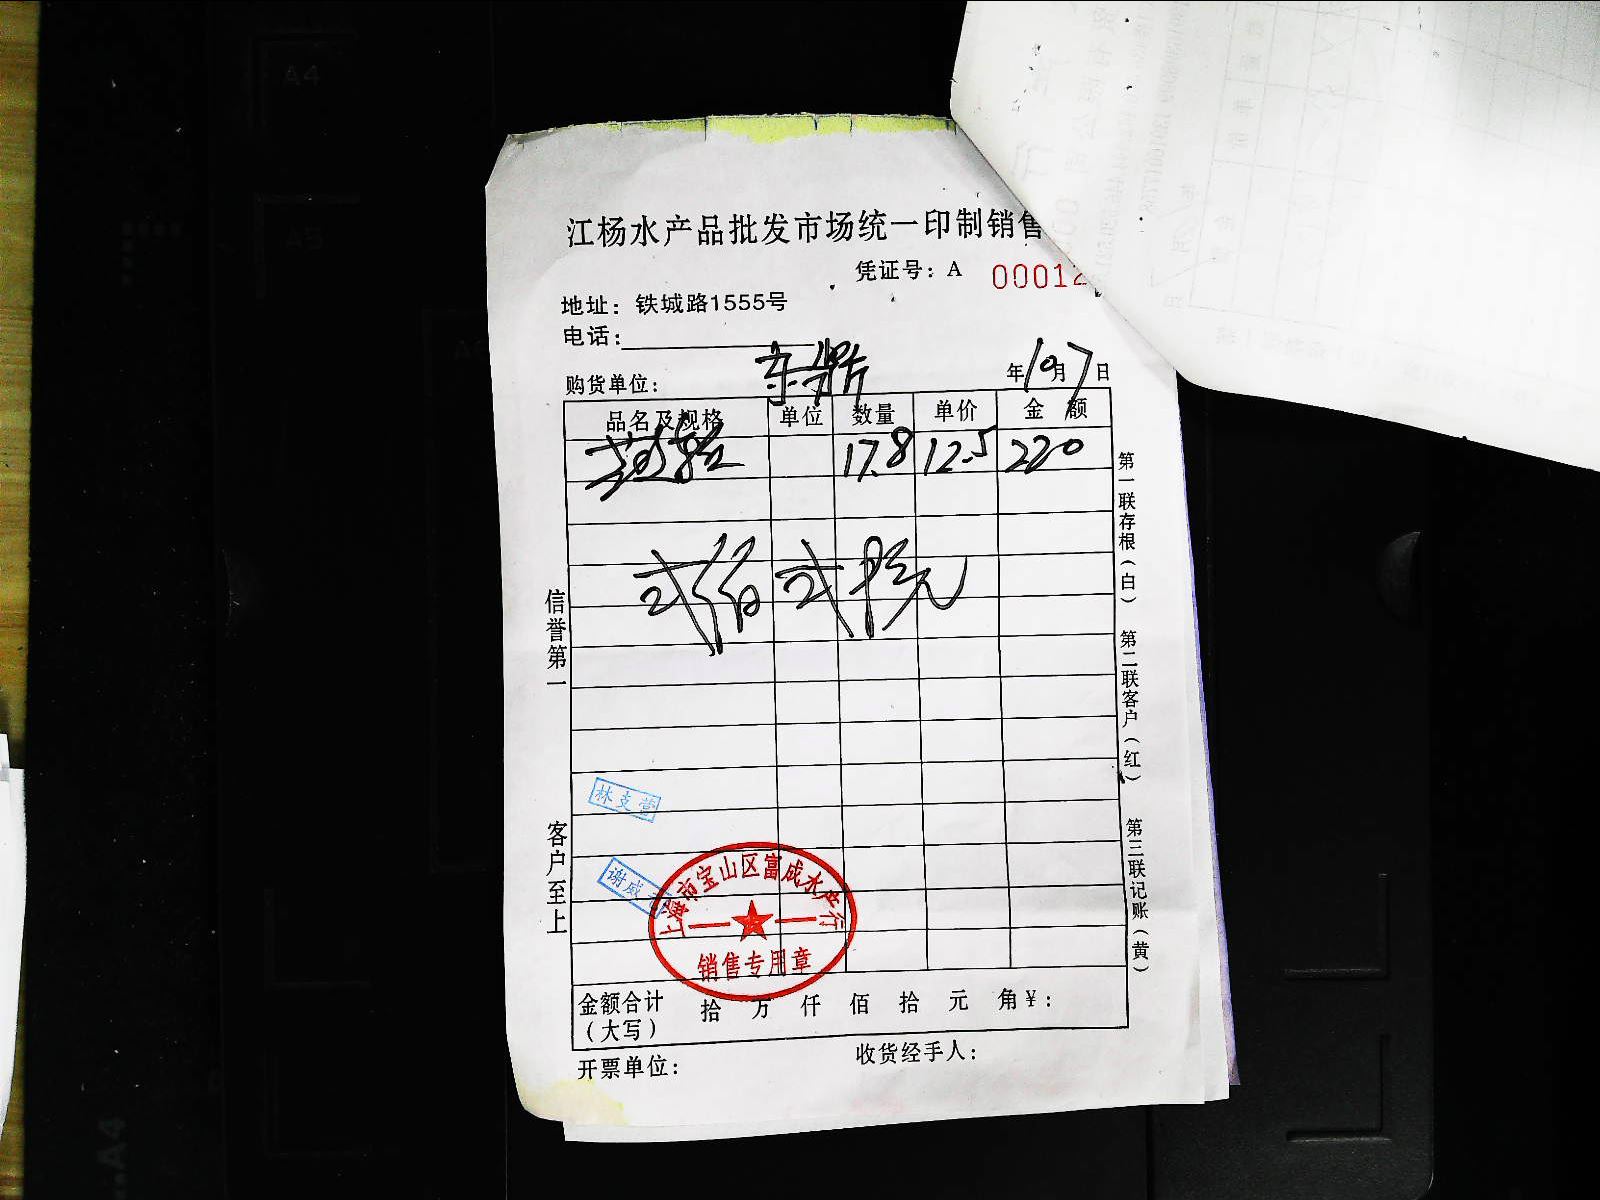 江杨水产品批发市场统一印制销售
凭证号：A 00012
地址：铁城路1555号
电话：
购货单位：
年10月7日
品名及规格 单位 数量 单价 金额
17.8 12.5 220
弍佰弍拾元
信誉第一
客户至上
第一联存根（白）
第二联客户（红）
第三联记账（黄）
林支营
谢威
上海市宝山区富成水产行
销售专用章
金额合计（大写） 拾 万 仟 佰 拾 元 角 ¥：
开票单位：
收货经手人：
A4
A5
A4